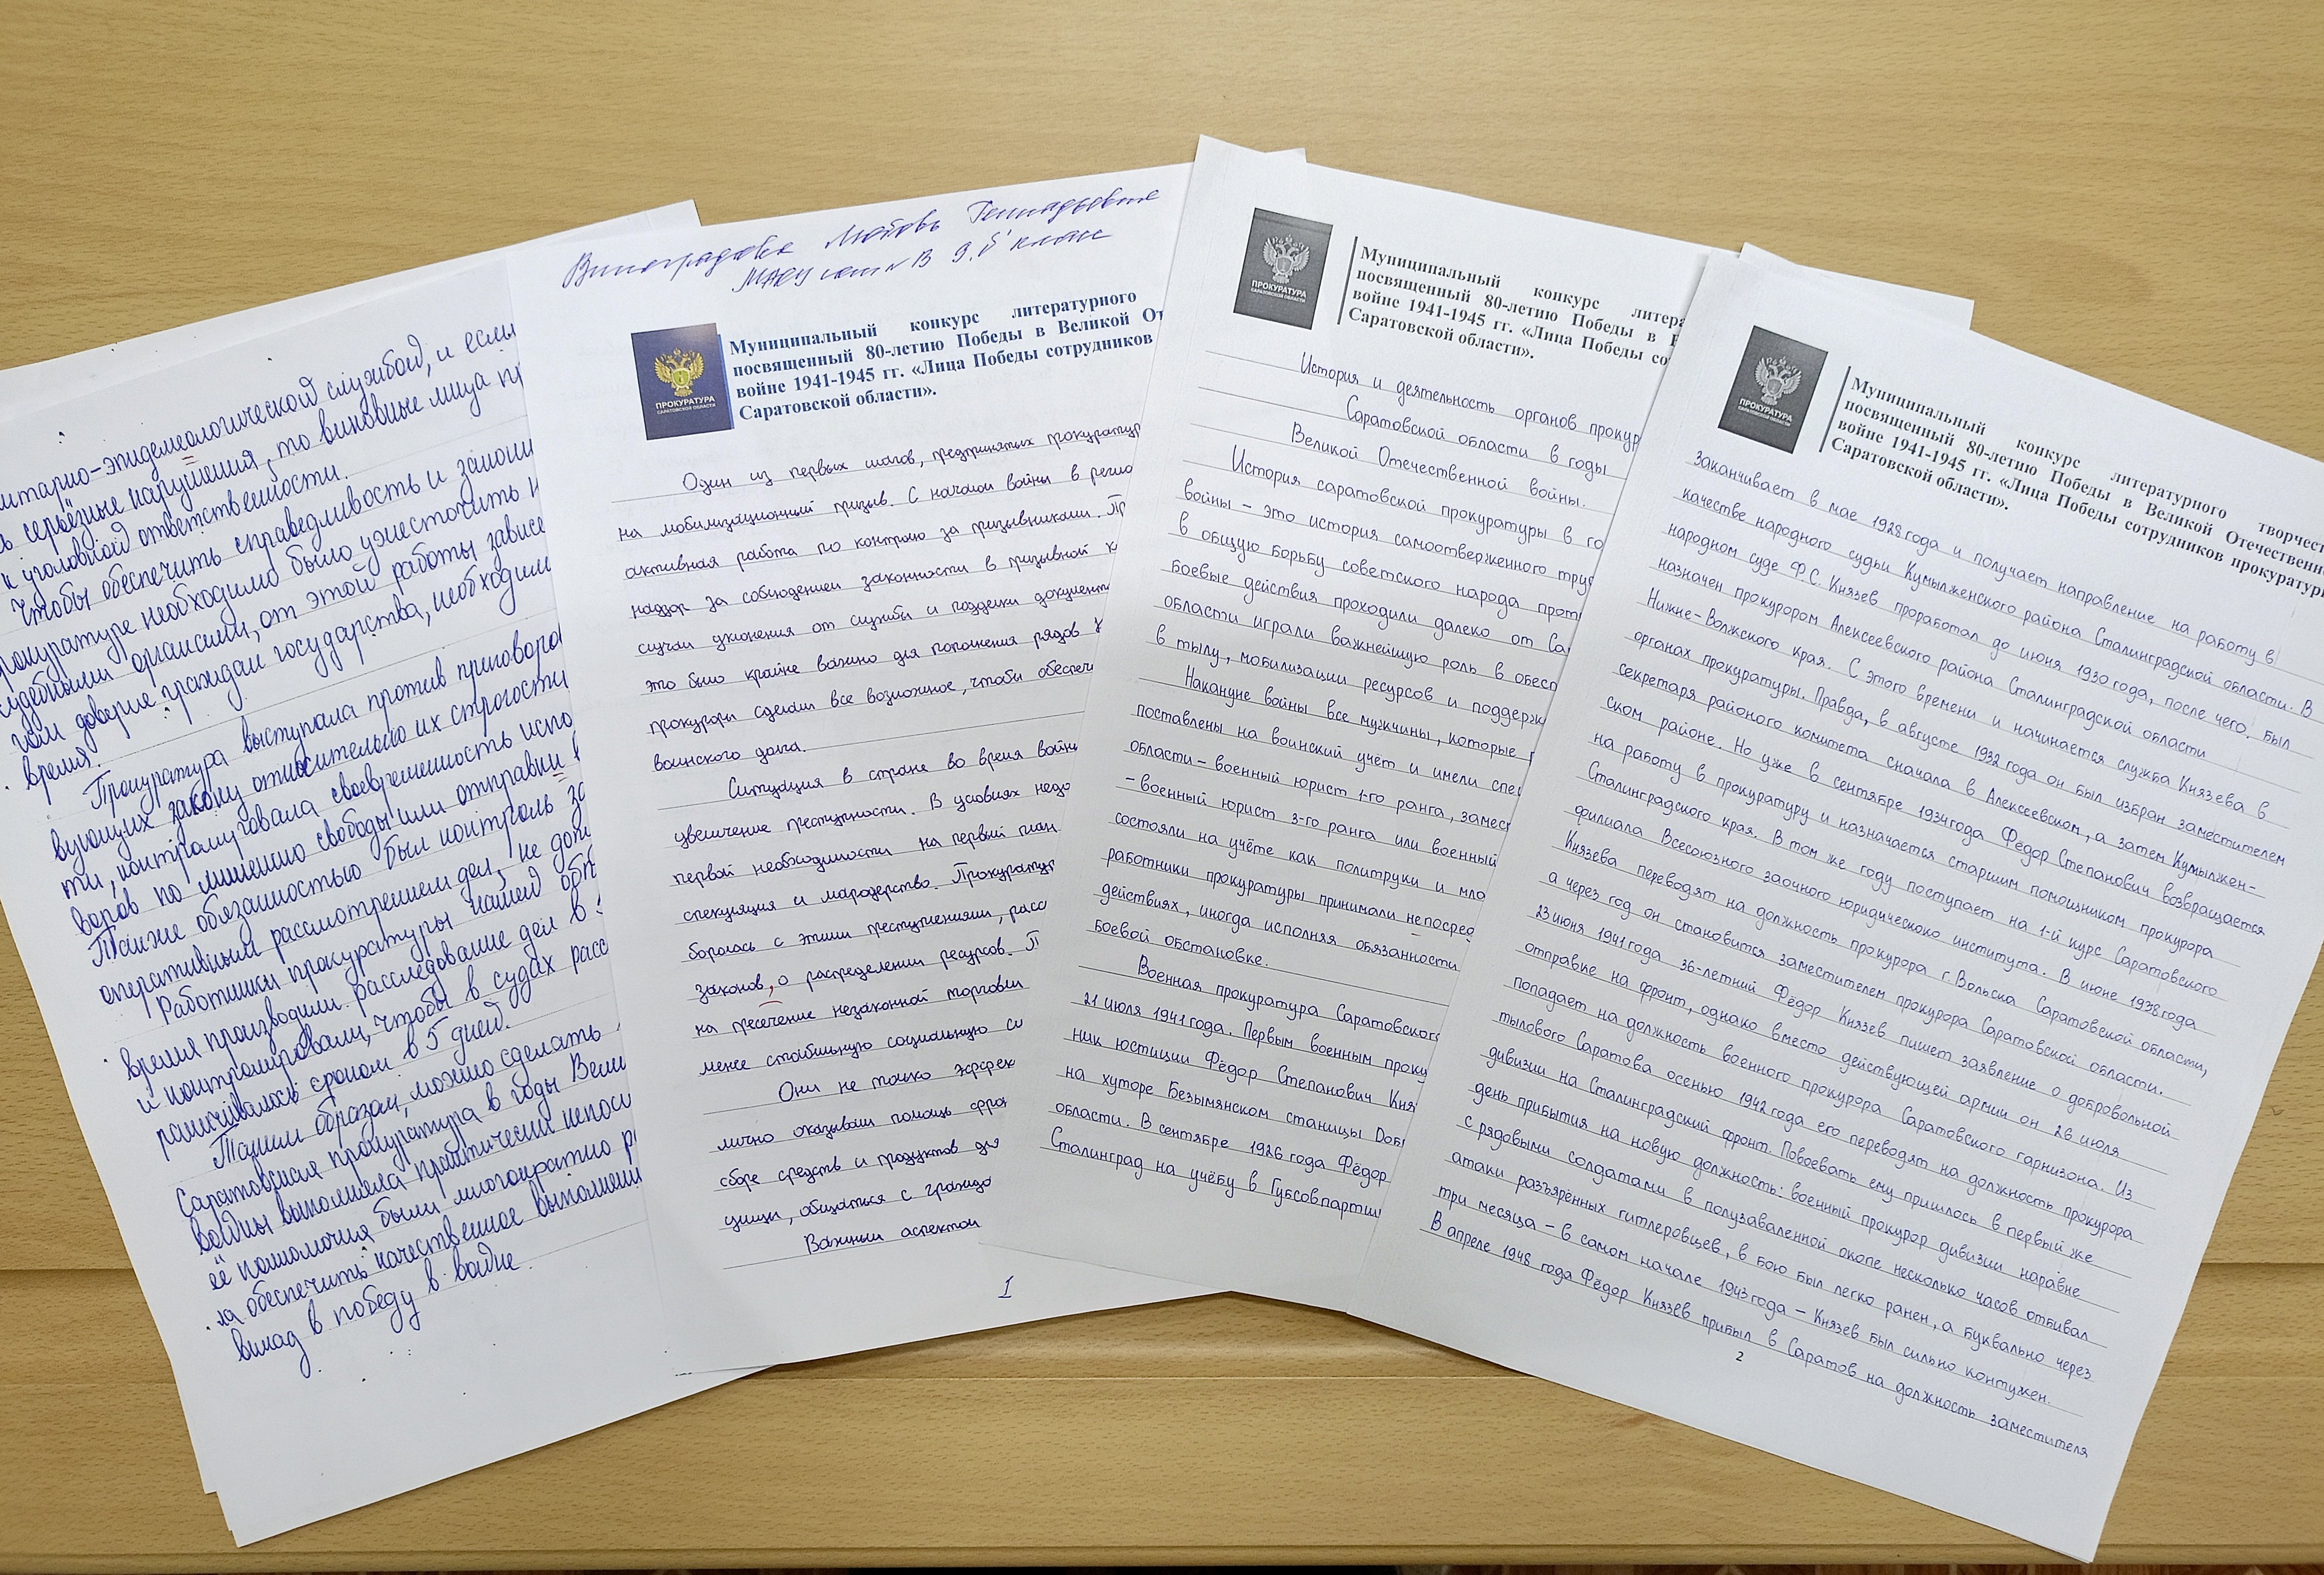 нитарно-эпидемеологической службой, и если
серьёзные нарушения, то виновные лица пр
к уголовной ответственности.
Чтобы обеспечить справедливость и законн
рокуратуре необходимо было ужесточить н
судебными органами, от этой работы зависе
доверие граждан государства, необходим
время.
Прокуратура выступала против приговоро
вующих закону относительно их строгости
ти, контролировала своевременность испо
воров по лишению свободы или отправки в
Также обязанностью был контроль за
оперативным рассмотрением дел, не доп
Работники прокуратуры нашей обл
время производили расследование дел в
и контролировали, чтобы в судах расс
сроком в 5 дней.
Таким образом, можно сделать
Саратовская прокуратура в годы Вели
войны выполняла практически непоси
её полномочия были многократно р
ла обеспечить качественное выполнени
вклад в победу в войне.
Виноградова Любовь Геннадьевна
9 "б" класс
Муниципальный конкурс литературного
посвященный 80-летию Победы в Великой От
войне 1941-1945 гг. «Лица Победы сотрудников
Саратовской области».
ПРОКУРАТУРА
САРАТОВСКОЙ ОБЛАСТИ
Один из первых шагов, предпринятых прокуратур
на мобилизационный призыв. С начала войны в регио
активная работа по контролю за призывниками. Пр
надзор за соблюдением законности в призывной к
случаи уклонения от службы и подделки документ
это было крайне важно для пополнения рядов К
прокуроры сделали все возможное, чтобы обеспеч
воинского долга.
Ситуация в стране во время войн
увеличение преступности. В условиях недо
первой необходимости на первый план
спекуляция и мародерство. Прокуратур
боролась с этими преступлениями, расс
законов, о распределении ресурсов. П
на пресечение незаконной торговли
менее стабильную социальную си
Они не только эффек
лично оказывали помощь фрон
сборе средств и продуктов дл
улицы, общаться с гражда
Важным аспектом
1
ПРОКУРАТУРА
САРАТОВСКОЙ ОБЛАСТИ
Муниципальный конкурс литера
посвященный 80-летию Победы в В
войне 1941-1945 гг. «Лица Победы со
Саратовской области».
История и деятельность органов прокур
Саратовской области в годы
Великой Отечественной войны.
История саратовской прокуратуры в го
войны - это история самоотверженного труд
в общую борьбу советского народа прот
боевые действия проходили далеко от Са
области играли важнейшую роль в обесп
в тылу, мобилизации ресурсов и поддерж
Накануне войны все мужчины, которые р
поставлены на воинский учёт и имели спец
области - военный юрист 1-го ранга, замест
- военный юрист 3-го ранга или военный
состояли на учёте как политруки и мла
работники прокуратуры принимали непосред
действиях, иногда исполняя обязанности
боевой обстановке.
Военная прокуратура Саратовского
21 июля 1941 года. Первым военным проку
ник юстиции Фёдор Степанович Кня
на хуторе Безымянском станицы Доб
области. В сентябре 1926 года Фёдор
Сталинград на учёбу в Губсовпартш
ПРОКУРАТУРА
САРАТОВСКОЙ ОБЛАСТИ
Муниципальный конкурс литературного творчест
посвященный 80-летию Победы в Великой Отечественн
войне 1941-1945 гг. «Лица Победы сотрудников прокуратур
Саратовской области».
Заканчивает в мае 1928 года и получает направление на работу в
качестве народного судьи Кумылженского района Сталинградской области. В
народном суде Ф.С. Князев проработал до июня 1930 года, после чего был
назначен прокурором Алексеевского района Сталинградской области
Нижне-Волжского края. С этого времени и начинается служба Князева в
органах прокуратуры. Правда, в августе 1932 года он был избран заместителем
секретаря районого комитета сначала в Алексеевском, а затем Кумылжен-
ском районе. Но уже в сентябре 1934 года Фёдор Степанович возвращается
на работу в прокуратуру и назначается старшим помощником прокурора
Сталинградского края. В том же году поступает на 1-й курс Саратовского
филиала Всесоюзного заочного юридического института. В июне 1938 года
Князева переводят на должность прокурора г. Вольска Саратовской области,
а через год он становится заместителем прокурора Саратовской области.
23 июня 1941 года 36-летний Фёдор Князев пишет заявление о добровольной
отправке на фронт, однако вместо действующей армии он 26 июля
попадает на должность военного прокурора Саратовского гарнизона. Из
тылового Саратова осенью 1942 года его переводят на должность прокурора
дивизии на Сталинградский фронт. Повоевать ему пришлось в первый же
день прибытия на новую должность: военный прокурор дивизии наравне
с рядовыми солдатами в полузаваленной окопе несколько часов отбивал
атаки разъярённых гитлеровцев, в бою был легко ранен, а буквально через
три месяца - в самом начале 1943 года - Князев был сильно контужен.
В апреле 1948 года Фёдор Князев прибыл в Саратов на должность заместителя
2